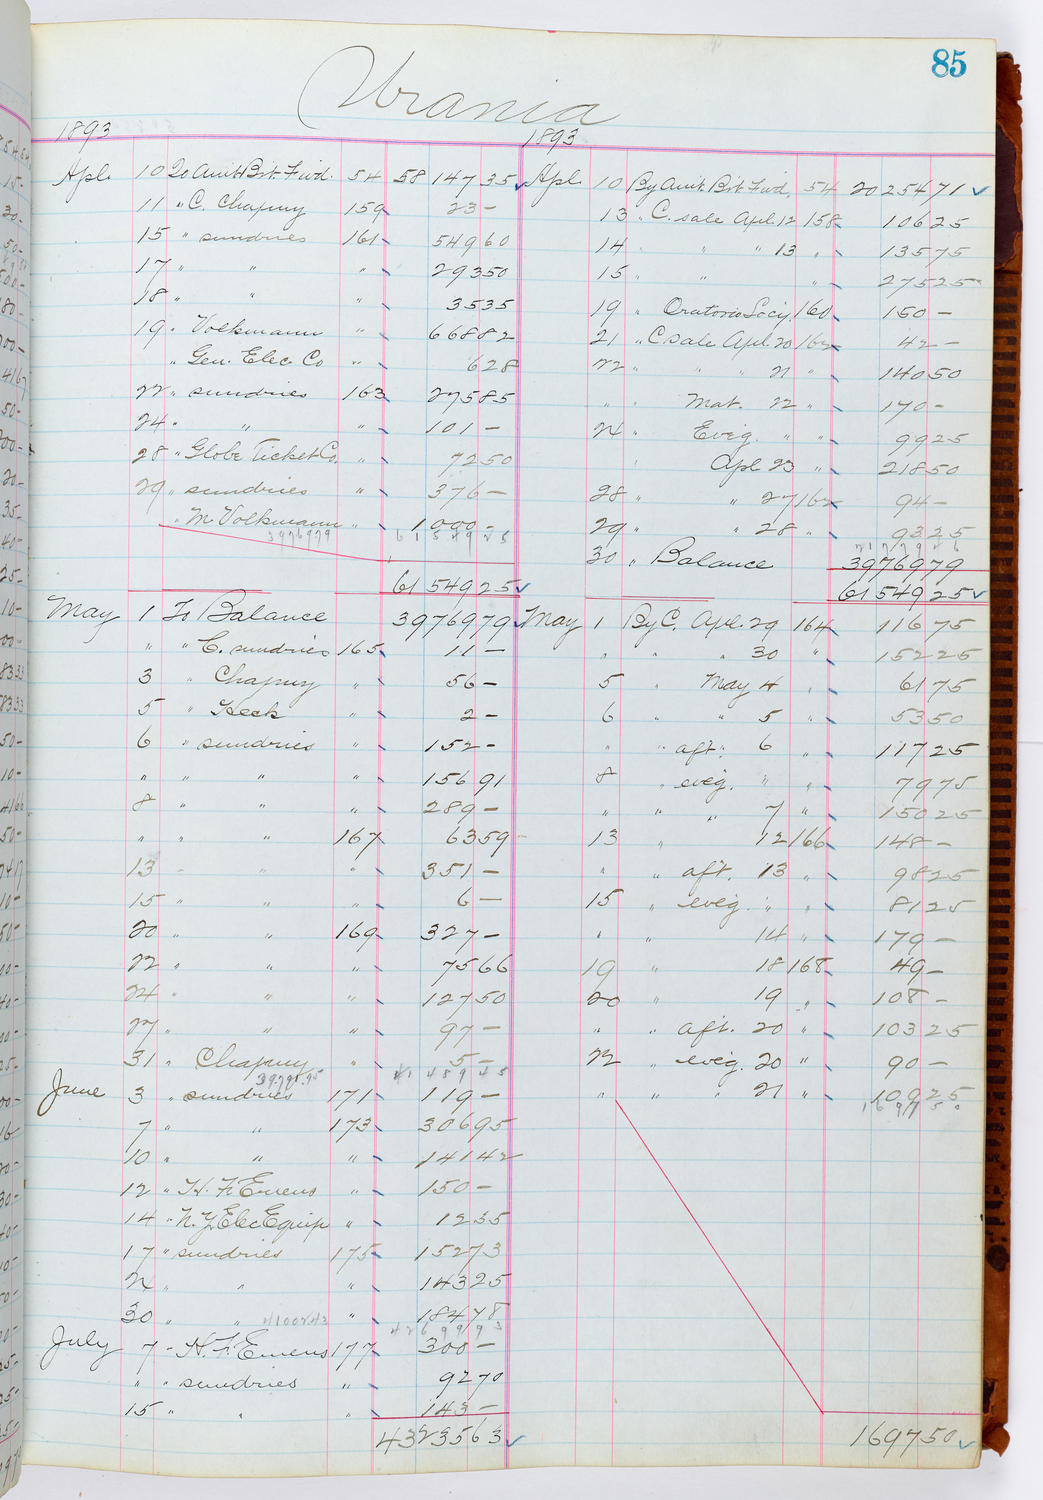 85
Urania
1893
Apl. 10 To Amt Brt. Fwd. 54 58 147 35
11 " C. Chapuy 159 23 —
15 " sundries 161 549 60
17 " " " 293 50
18 " " " 35 35
19 " Volkmann " 668 82
" Gen. Elec Co " 6 28
22 " sundries 163 275 85
24 " " " 101 —
28 " Globe Ticket Co. " 72 50
29 " sundries " 376 —
" M Volkmann " 1 000 —
3976979 6154925
61 549 25
May 1 To Balance 39 769 79
" " C. sundries 165 11 —
3 " Chapuy " 56 —
5 " Heck " 2 —
6 " sundries " 152 —
" " " " 156 91
8 " " " 289 —
" " " 167 63 59
13 " " " 351 —
15 " " " 6 —
20 " " 169 327 —
22 " " " 75 66
24 " " " 127 50
27 " " " 97 —
31 " Chapuy " 5 —
June 3 " sundries 171 119 —
7 " " 173 306 95
10 " " " 141 42
12 " H. F. Emens " 150 —
14 " N.Y. Elec Equip " 12 35
17 " sundries 175 152 73
24 " " " 143 25
30 " " " 184 78
4100243
July 7 " H. F. Emens 177 300 —
" " sundries " 92 70
15 " " " 143 —
43 235 63
1893
Apl. 10 By Amt. Brt Fwd. 54 20 254 71
13 " C. sale Apl. 12 158 106 25
14 " " 13 " 135 75
15 " " " 275 25
19 " Oratorio Socy. 160 150 —
21 " C. sale Apl. 20 162 42 —
22 " " " 21 " 140 50
" " Mat. 22 " 170 —
24 " Eveg. " " 99 25
" Apl 23 " 218 50
28 " " 27 162 94 —
29 " " 28 " 93 25
30 " Balance 39 769 79
61 549 25
May 1 By C. Apl. 29 164 116 75
" " " 30 " 152 25
5 " May 4 " 61 75
6 " " 5 " 53 50
" " aft. 6 " 117 25
8 " eveg. " " 79 75
" " " 7 " 150 25
13 " 12 166 148 —
" " aft. 13 " 98 25
15 " eveg. " " 81 25
" " 14 " 179 —
19 " 18 168 49 —
20 " 19 " 108 —
" " aft. 20 " 103 25
22 " eveg. 20 " 90 —
" " " 21 " 109 25
1 697 50